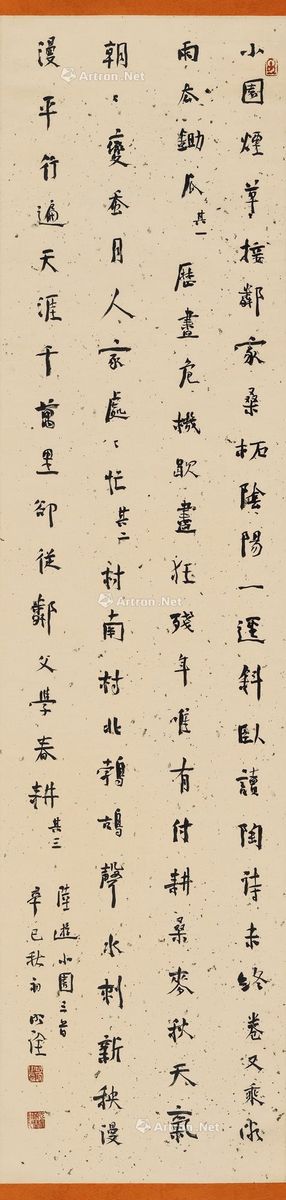 小園煙草接鄰家桑柘陰陽一逕斜臥讀陶詩未終卷又乘微
雨去鋤瓜其一歷盡危機歇盡狂殘年唯有付耕桑麥秋天氣
朝〻變蠶月人家處〻忙其二村南村北鵓鴣聲水刺新秧漫
漫平行遍天涯千萬里卻從鄰父學春耕其三
陸游小園三首
辛巳秋初明詮
Artron.Net
Artron.Net
Artron.Net
Artron.Net
Artron.Net
Artron.Net